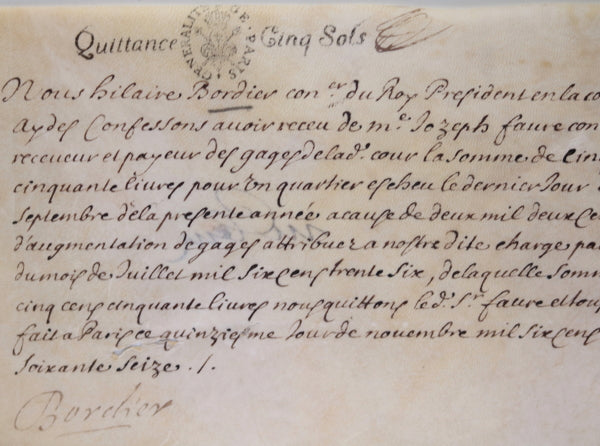 Quittance Cinq Sols
GENERALITE DE PARIS
Nous hilaire Bordier con.er du Roy President en la co
Aydes Confessons avoir receu de m.e Jozeph faure con
receveur et payeur des gages de lad. cour la somme de Cinq
cinquante livres pour un quartier escheu le dernier Jour
septembre de la presente année a cause de deux mil deux ce
d'augmentation de gages attribuez a nostre dite charge pa
du mois de Juillet mil six cens trente six, de laquelle somm
cinq cens cinquante livres nous quittons le d. Sr. faure et tous
fait a Paris ce quinziesme Jour de novembre mil six cens
soixante seize ./.
Bordier